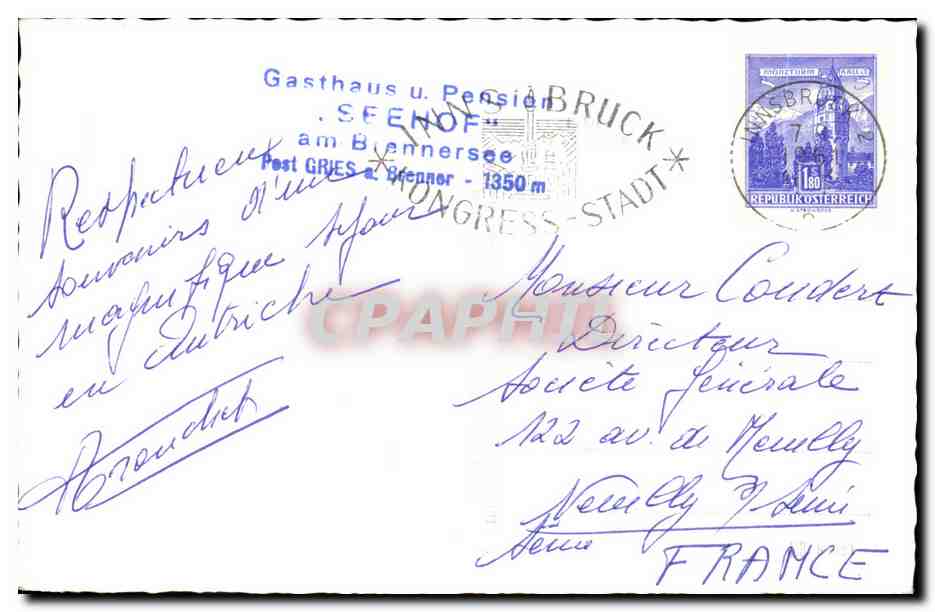 Gasthaus u. Pension
„SEEHOF"
am Brennersee
Post GRIES a. Brenner - 1350 m
INNSBRUCK
KONGRESS-STADT
INNSBRUCK 2
1.80
REPUBLIK ÖSTERREICH
Respectueux
souvenirs d'un
magnifique séjour
en Autriche
Monsieur Coudert
Directeur
Société Générale
122 av. de Neuilly
Neuilly s/Seine
Seine
FRANCE
CPAPHIL